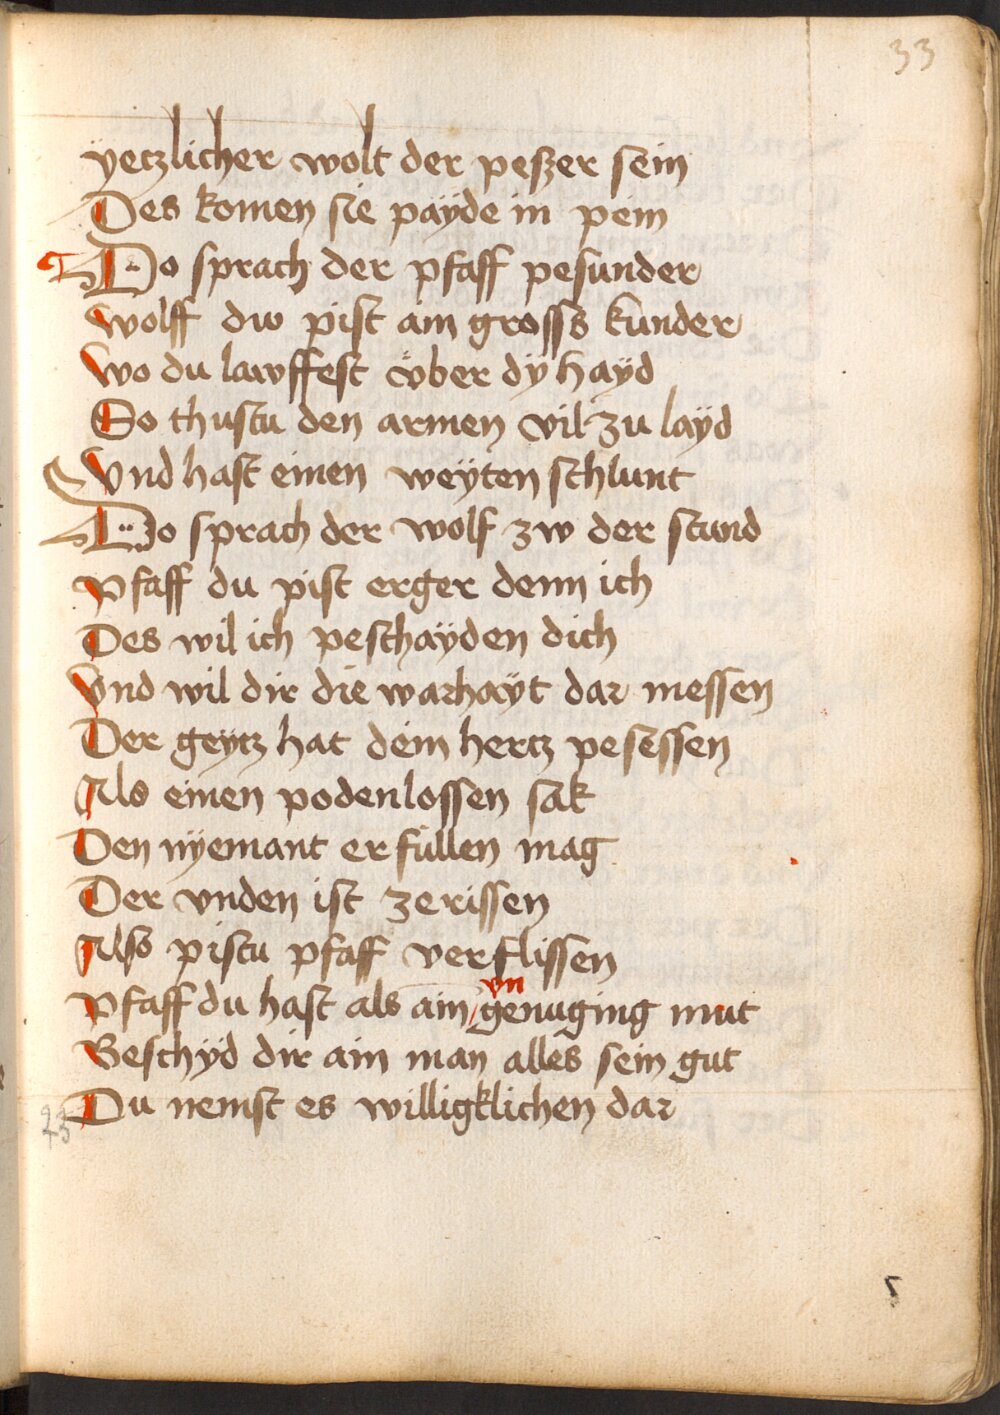 33
ÿetzlicher wolt der peßer sein
Des komen sie paÿde in pein
Do sprach der pfaff pesunder
wolff dw pist ain grosss kunder
Wo du lawffest vͤber dÿ haÿd
So thustu den armen vil zu laÿd
Vnd hast einen weÿten schlunt
Do sprach der wolf zw der stund
Pfaff du pist erger denn ich
Des wil ich peschaÿden dich
Vnd wil dir die warhaÿt dar messen
Der geÿtz hat dein hertz pesessen
Als einen podenlossen sak
Den nÿemant erfullen mag
Der vnden ist zerissen
Also pistu pfaff verflissen
vn
Pfaff du hast als ain genuging mut
Beschÿd dir ain man alles sein gut
Du nemst es willigklichen dar
23
5